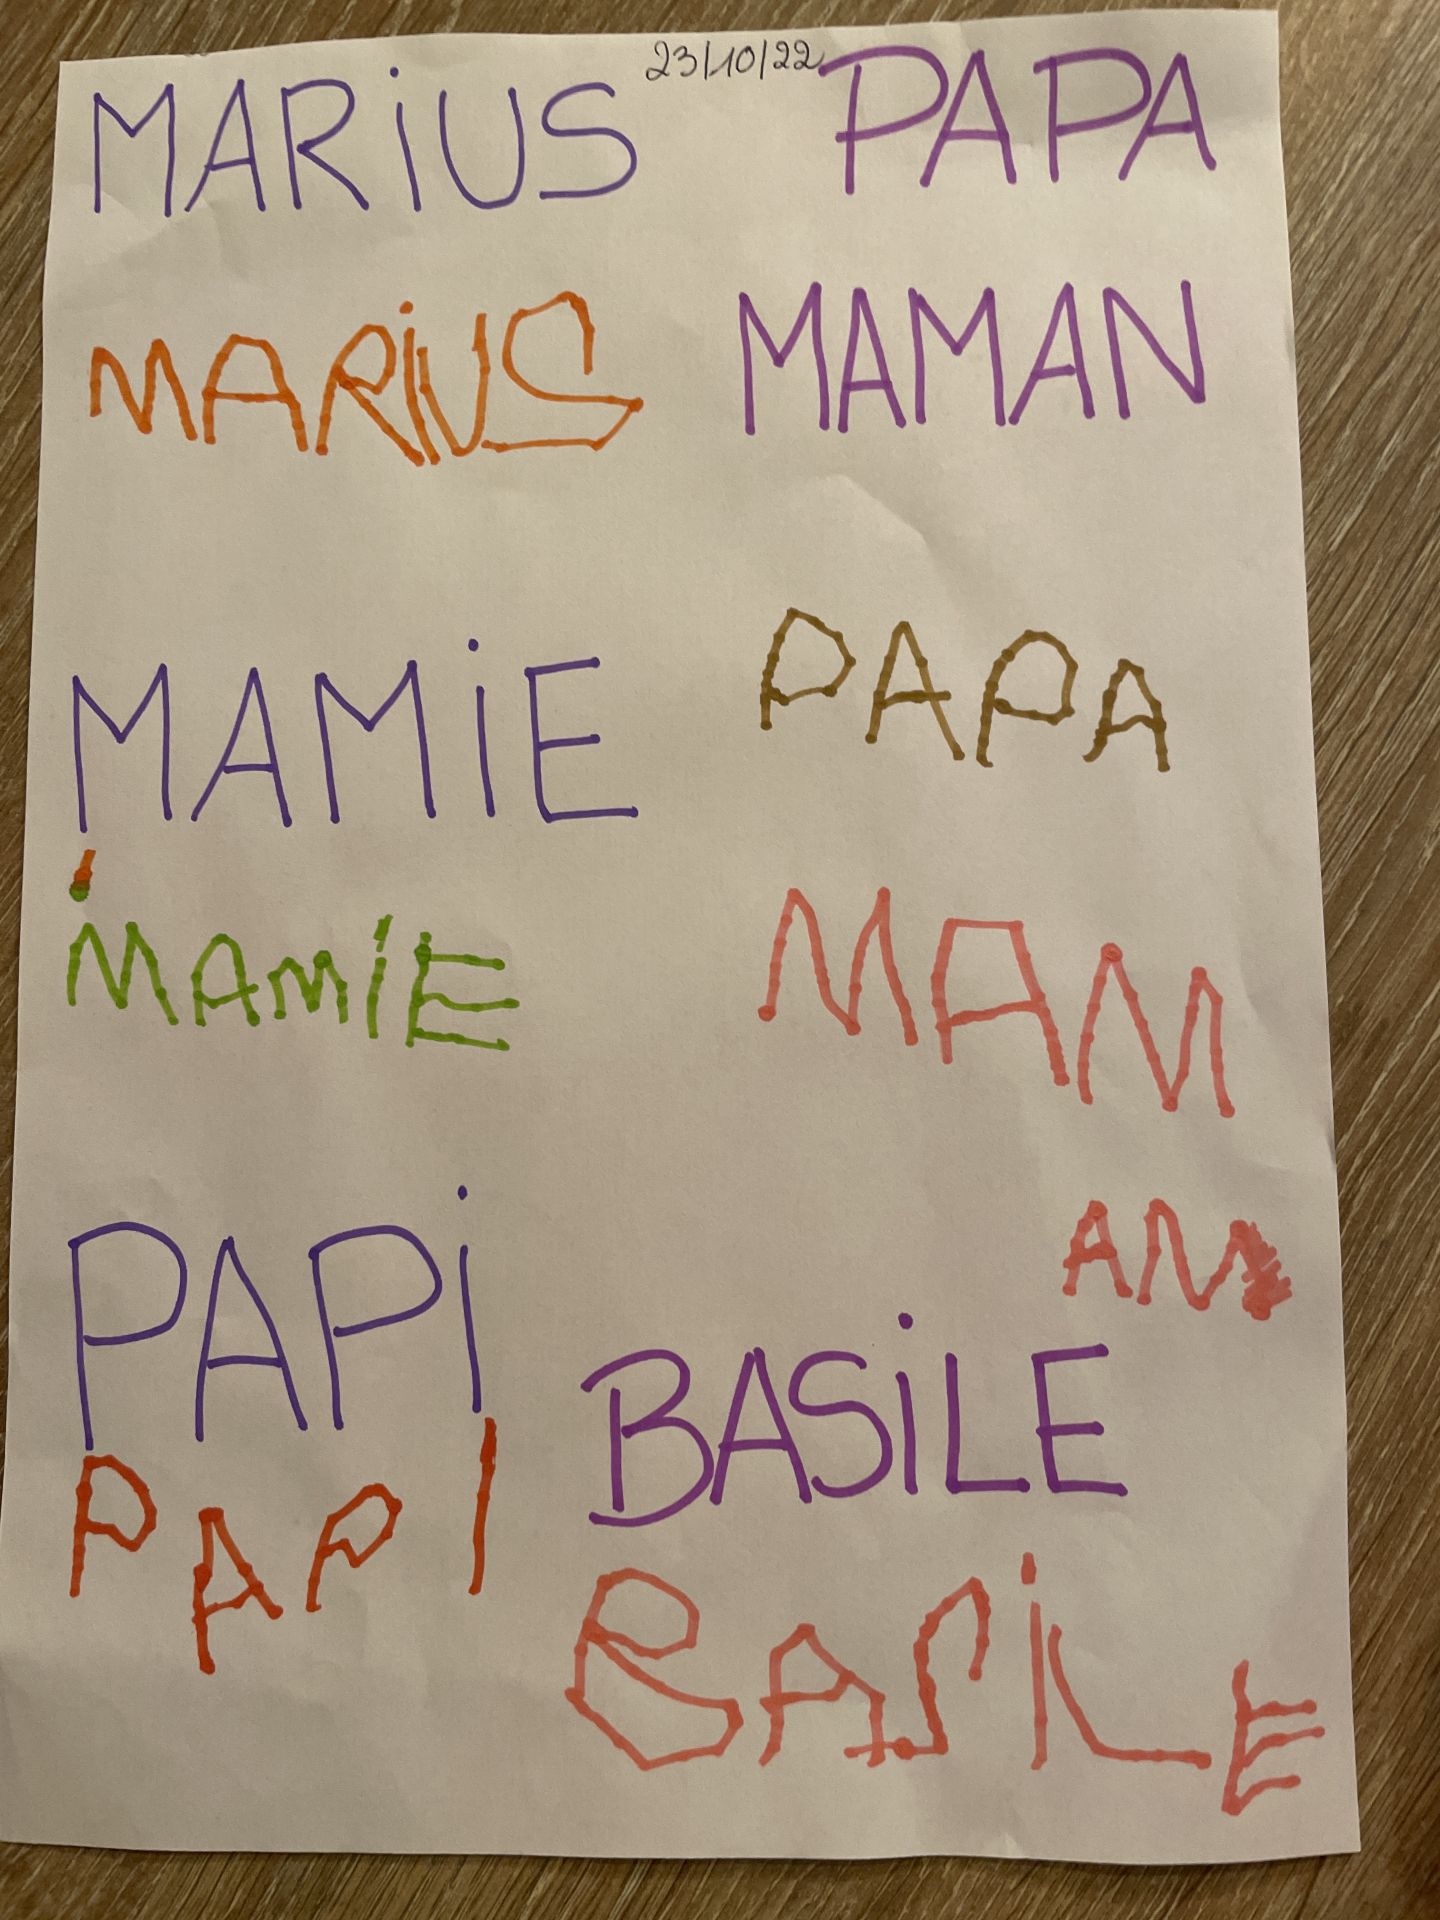 23/10/22
MARiUS
PAPA
MARiUS
MAMAN
MAMiE
PAPA
MAMiE
MAM
AM
PAPi
BASiLE
PAPI
BASiLE